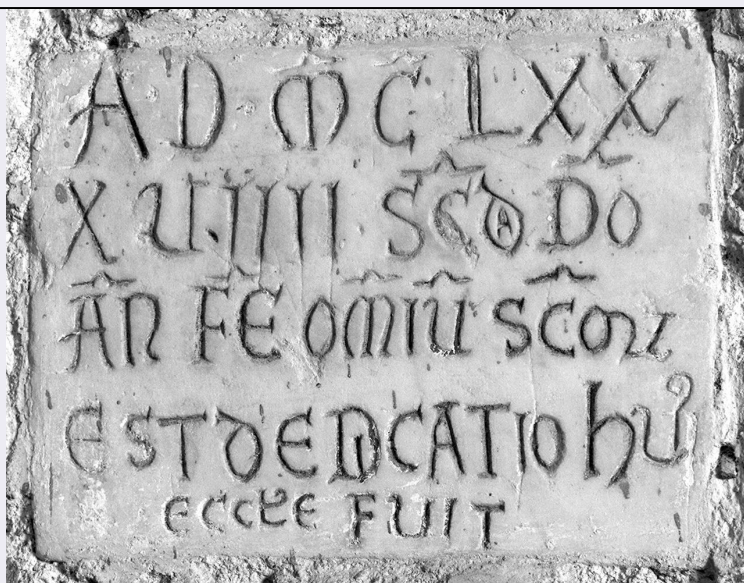 A D M̅ C̅ L X X
X U IIII SC̅DA DO̅
A̅N F̅E OM̅IU̅ SC̅OꝜ
EST DEDICATIO HUº
ECCLE FUIT